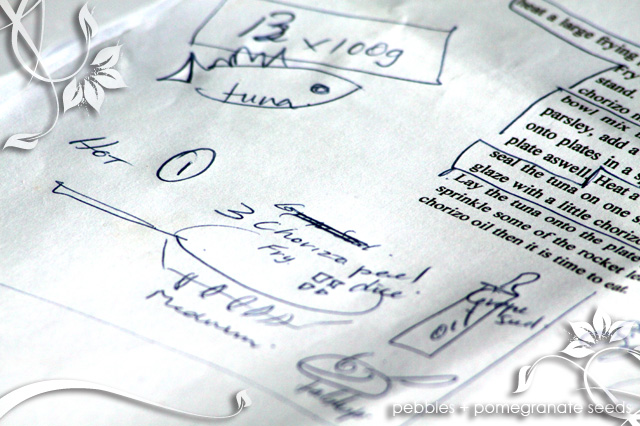 13 x 100g
tuna
HOT 1
3 Chorizo peel
Fry dice.
Medium.
Grape
Seed
oil
6
heat a large frying
Fry
stand.
chorizo m
bowl mix
parsley, add a
onto plates in a s
plate aswell Heat a
seal the tuna on one s
glaze with a little chorizo
Lay the tuna onto the plate
sprinkle some of the rocket
chorizo oil then it is time to eat.
pebbles + pomegranate seeds